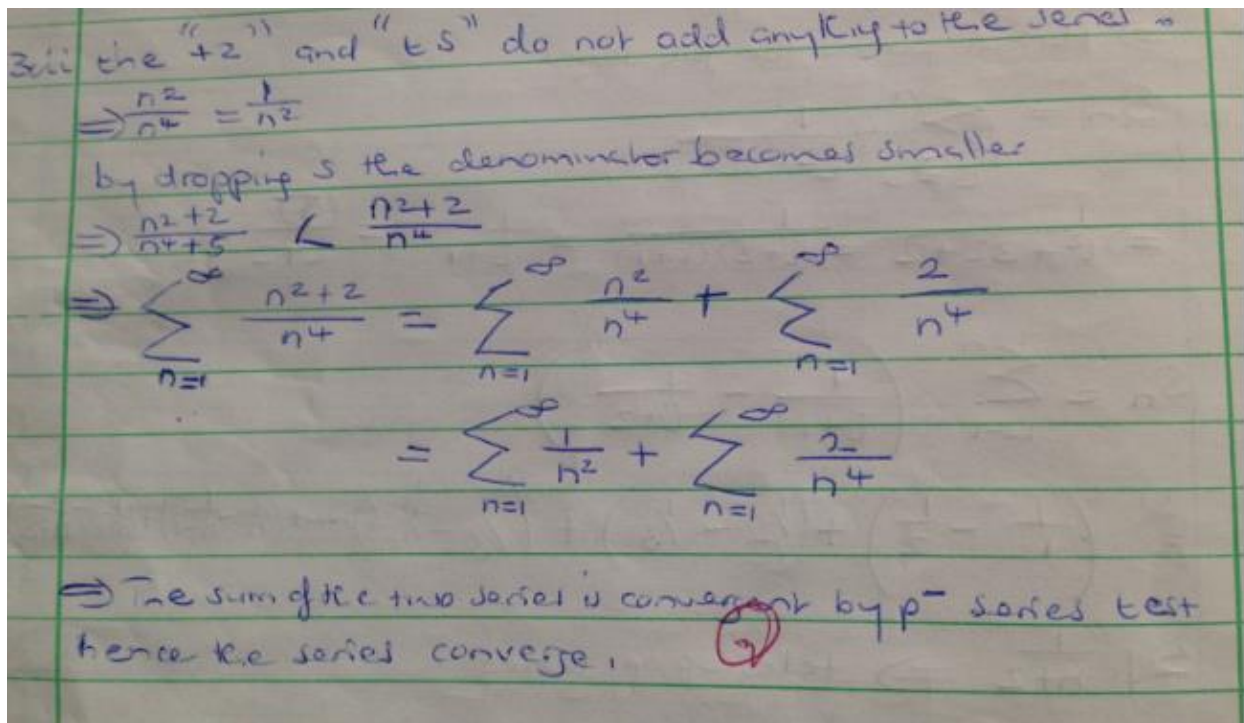 3iii the "+2" and "+5" do not add anything to the series
⇒ n2/n4 = 1/n2
by dropping 5 the denominator becomes smaller
⇒ n2+2/n4+5 < n2+2/n4
⇒ ∞∑n=1 n2+2/n4 = ∞∑n=1 n2/n4 + ∞∑n=1 2/n4
= ∞∑n=1 1/n2 + ∞∑n=1 2/n4
⇒ The sum of the two series is convergent by p- series test
hence the series converge.